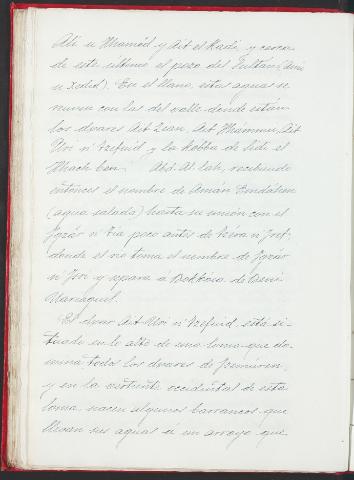 Ali u Hhamed y Ait el Kadi, y cerca
de este ultimo el pozo del Sultan (Anú
u Xelid). En el llano, estas aguas se
nunen con las del valle donde están
los duares Ait Zian, Ait Hhámmu, Ait
Uri n'Izefuid y la Kobba de Sidi el
Hhach ben Abd-Al-lah, recibiendo
entonces el nombre de Amán
(agua salada) hasta su unión con el
Igzár n Zia poco antes de
donde el rio toma el nombre de Igzár
n y separa á Bokkóia de Beni
Uariaguel.
El duar Ait Uri n'Izefuid, está si-
tuado en lo alto de una loma que do-
mina todos los duares de
y en la vertiente occidental de esta
loma, nacen algunos barrancos que
llevan sus aguas á un arroyo que